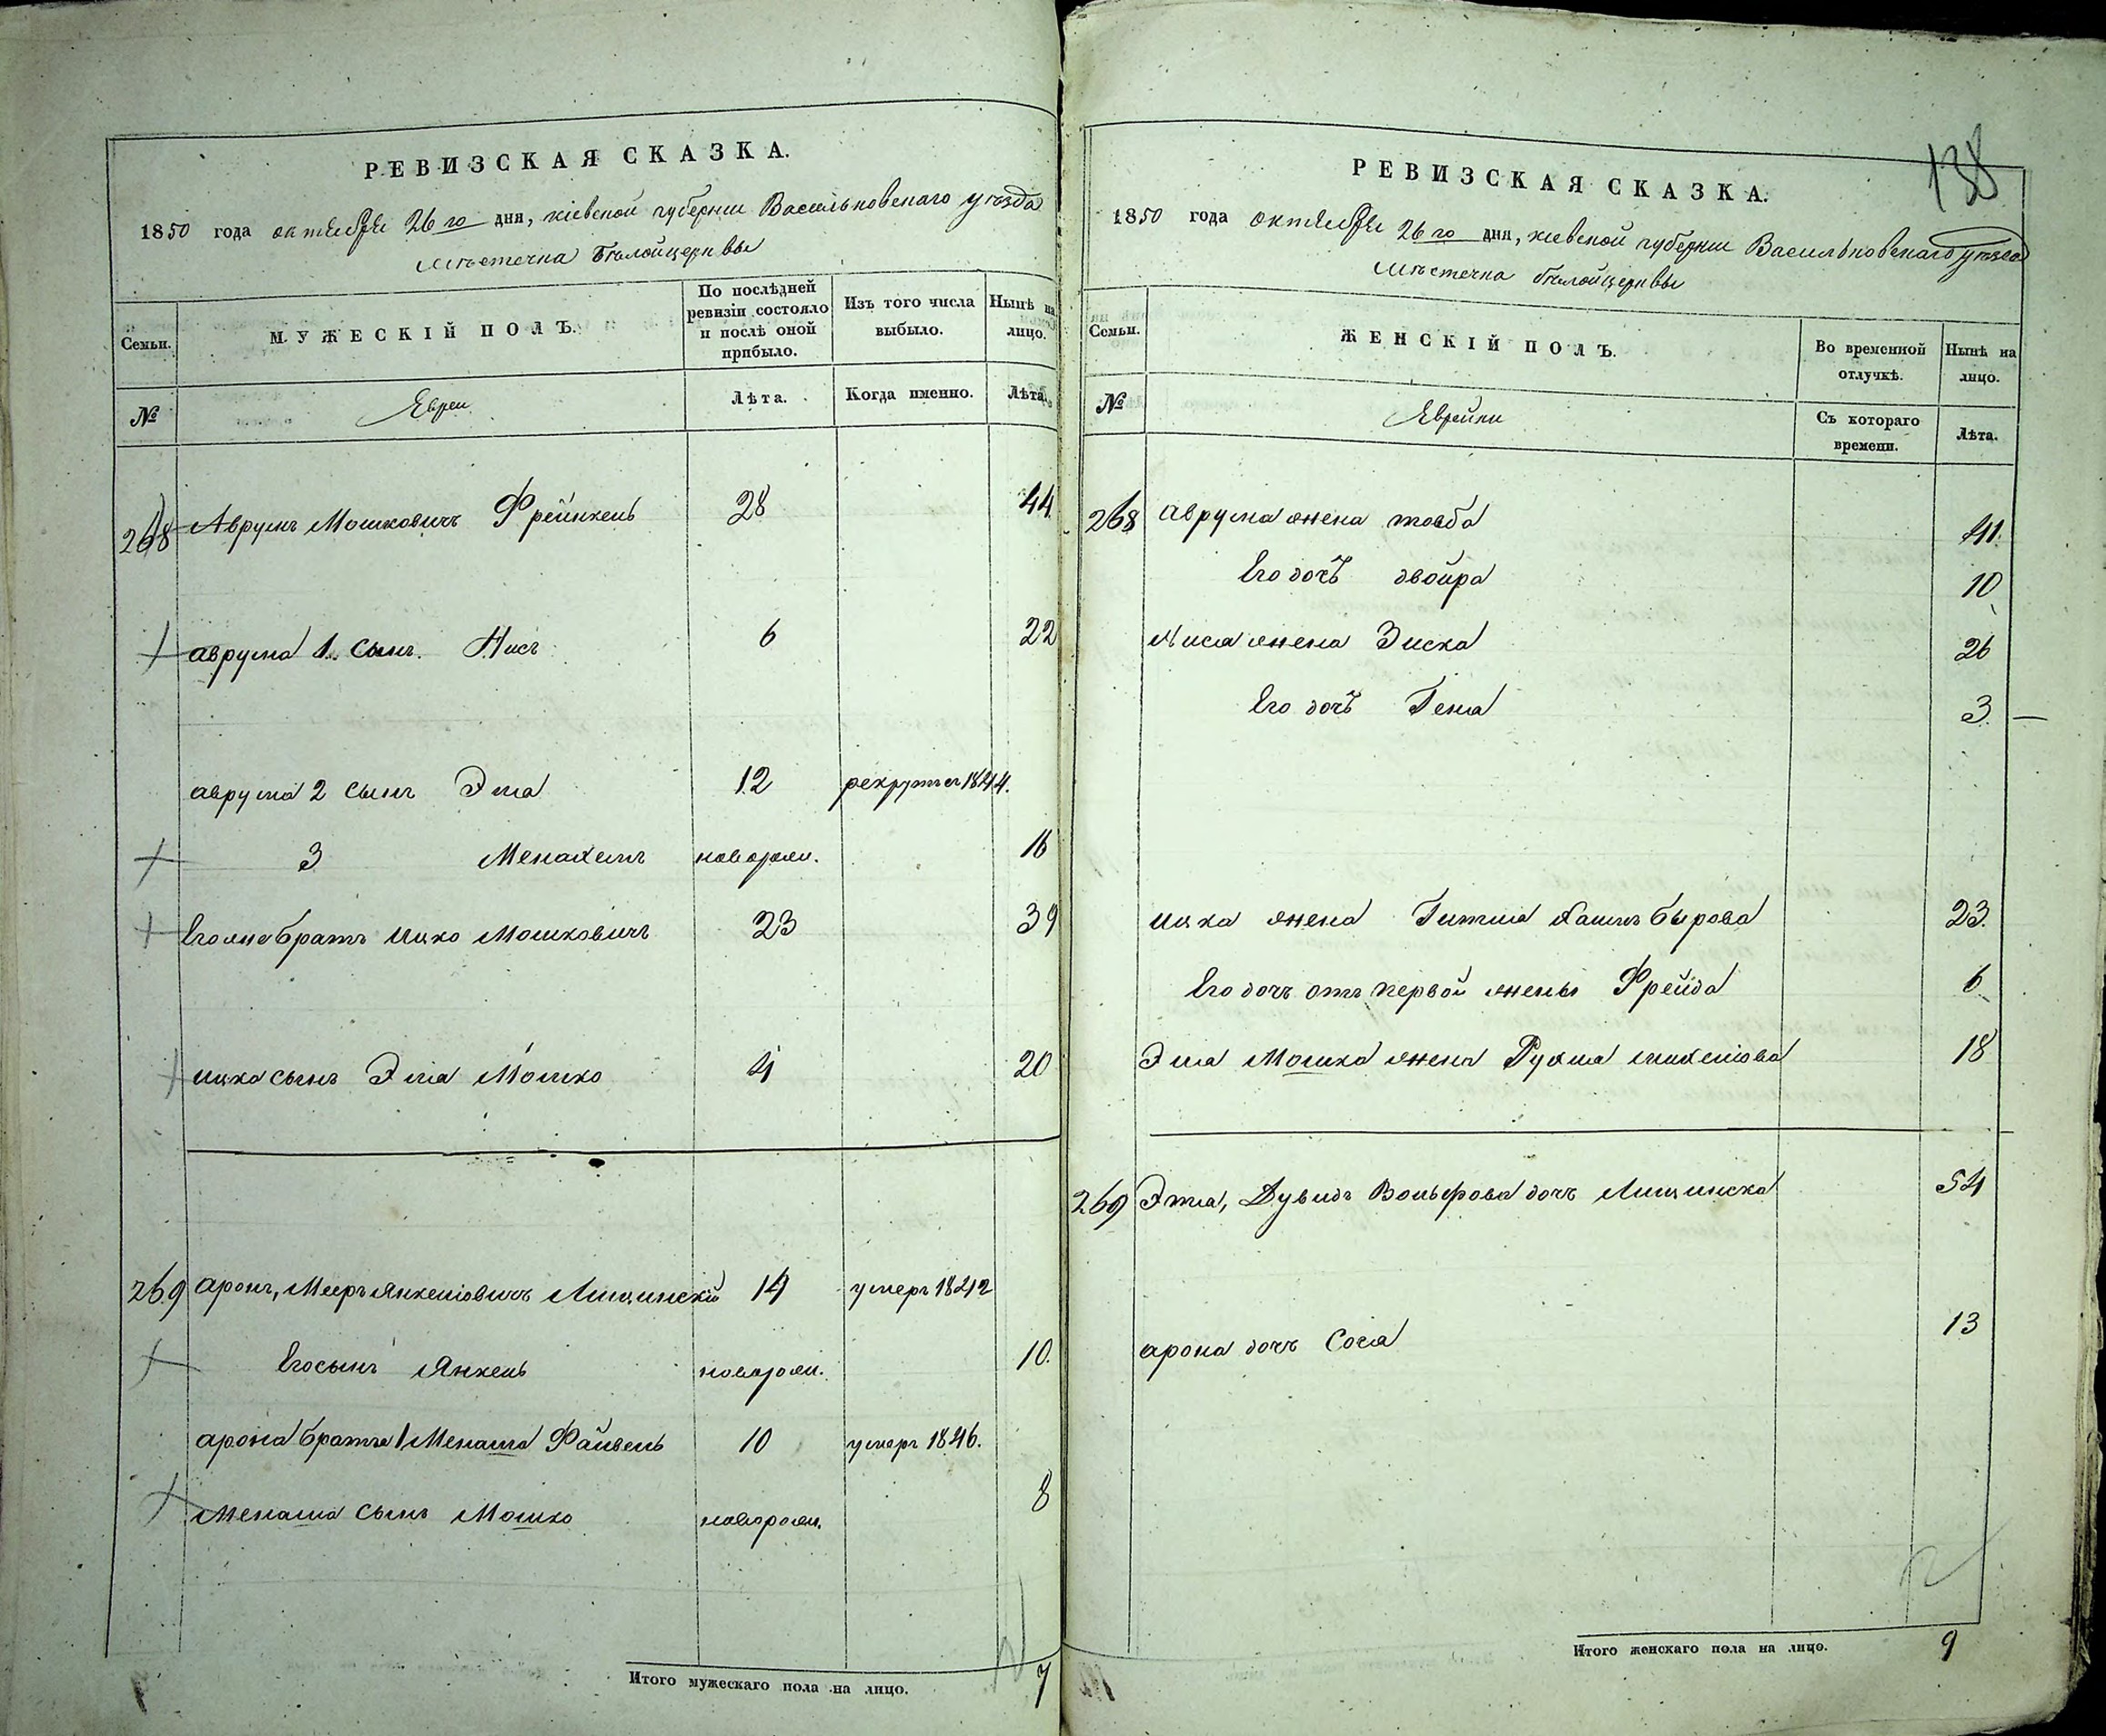 РЕВИЗСКАЯ СКАЗКА.
1850 года октября 26 го дня, кіевской губерніи Васильковскаго уѣзда
мѣстечка Бѣлойцеркви
Семьи.
МУЖЕСКІЙ ПОЛЪ.
По послѣдней ревизіи состояло и послѣ оной прибыло.
Изъ того числа выбыло.
Нынѣ на лицо.
№
Евреи
Лѣта.
Когда именно.
Лѣта.
268 Аврумъ Мошковичъ Френкель 28 44
аврума 1. сынъ. Нисъ 6 22
аврума 2 сынъ Эла 12 рекрутъ 1844.
3 Менахемъ новорож. 16
Егоже братъ Ицко Мошковичъ 23 39
ицка сынъ Эла Мошко 4 20
269 аронъ, Меръ Янкелiовичъ Лищинскій 14 умеръ 1842
Его сынъ Янкель новорож. 10.
арона братъ Менаша Файвель 10 умеръ 1846.
Менаша сынъ Мошко новорож. 8
Итого мужескаго пола на лицо. 7
138
РЕВИЗСКАЯ СКАЗКА.
1850 года октября 26 го дня, кіевской губерніи Васильковскаго уѣзда
мѣстечка Бѣлойцеркви
Семьи.
ЖЕНСКІЙ ПОЛЪ.
Во временной отлучкѣ.
Нынѣ на лицо.
№
Еврейки
Съ котораго времени.
Лѣта.
268 аврума жена товба 41.
Его дочь двойра 10
Ниса жена Зиска 26
Его дочь Геня 3.
ицка жена Гитля 23.
Его дочь отъ первой жены Фрейда 6
Эла Мошка жена Рухля 18
269 Этля, Дувидъ Вольфова дочь Лищинска 54
арона дочь Сося 13
Итого женскаго пола на лицо. 9